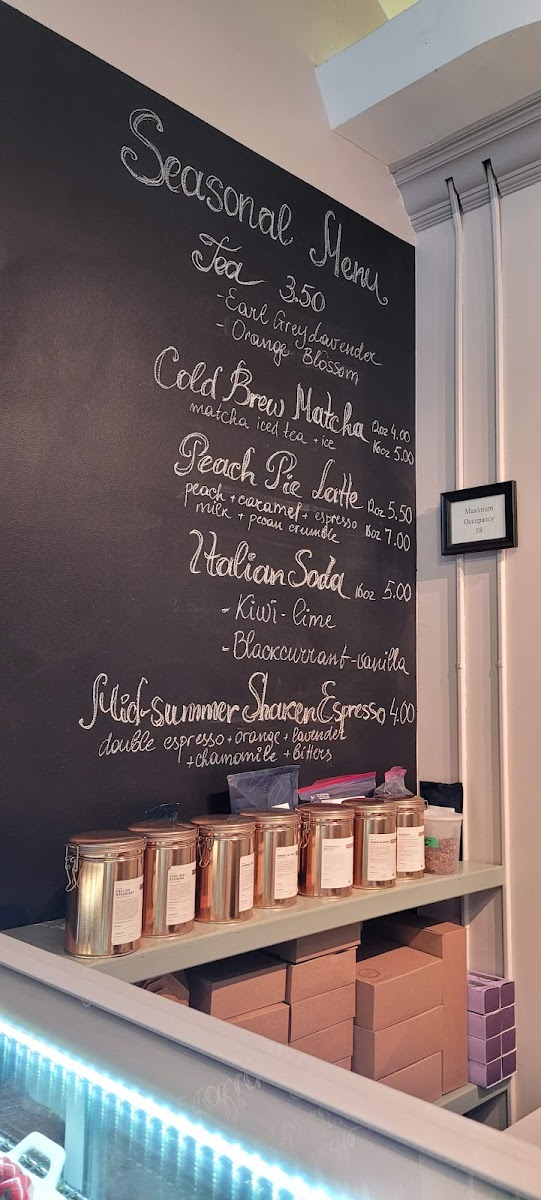 Seasonal Menu
Tea 3.50
- Earl Grey Lavender
- Orange Blossom
Cold Brew Matcha 12oz 4.00
matcha iced tea + ice 16oz 5.00
Peach Pie Latte 12oz 5.50
peach + caramel + espresso 16oz 7.00
milk + pecan crumble
Italian Soda 16oz 5.00
- Kiwi-lime
- Blackcurrant-vanilla
Mid-summer Shaken Espresso 4.00
double espresso + orange + lavender
+ chamomile + bitters
Maximum
Occupancy
58